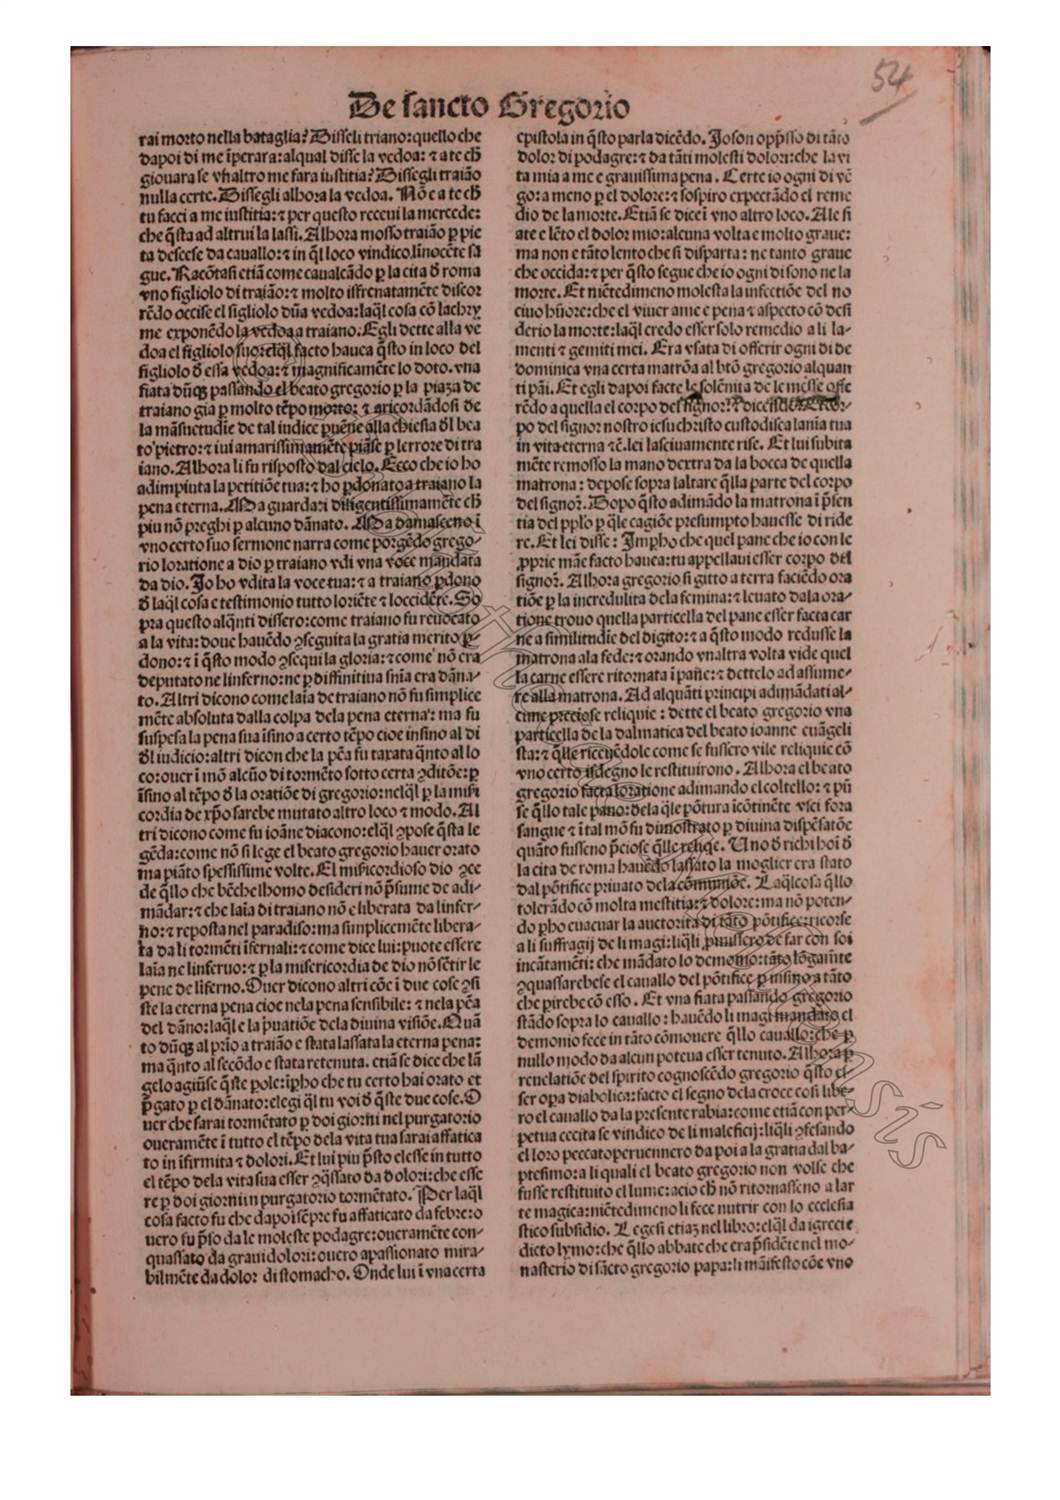 54
De sancto Gregorio
rai morto nella bataglia? Disseli triano: quello che
dapoi di me ĩperara: alqual disse la vedoa: ⁊ a te ch̄
giouara se vñ altro me fara iustitia? Dissegli traião
nulla certe. Dissegli alhora la vedoa. Nõ e a te ch̄
tu facci a me iustitia: ⁊ per questo receui la mercede:
che q̃sta ad altrui la lassi. Alhora mosso traião ꝑ pie
ta descese da cauallo: ⁊ in q̃l loco vindico.lĩnocẽte sã
gue. Racõtasi etiã come caualcãdo ꝑ la cita đ roma
vno figliolo di traião: ⁊ molto isfrenatamẽte discor
rẽdo occise el figliolo dũa vedoa: laq̃l cosa cõ lachry
me exponẽdo la vedoa a traiano. Egli dette alla ve
doa el figliolo suo: elq̃l facto hauea q̃sto in loco del
figliolo đ essa vedoa: ⁊ magnificamẽte lo doto. vna
fiata dũqꝫ passando el beato gregorio ꝑ la piaza de
traiano gia ꝑ molto tẽpo morto: ⁊ aricordãdosi de
la mãsuetudĩe de tal iudice ꝑuẽne alla chiesia đl bea
to pietro: ⁊ iui amarissimamẽte piãse ꝑ lerrore di tra
iano. Alhora li fu risposto dal cielo. Ecco che io ho
adimpiuta la petitiõe tua: ⁊ ho ꝑdonato a traiano la
pena eterna. Ma guarda: i diligentissimamẽte ch̄
piu nõ preghi ꝑ alcuno dãnato. Ma damasceno ĩ
vno certo suo sermone narra come porgẽdo grego-
rio loratione a dio ꝑ traiano vdi vna voce mandata
da dio. Io ho vdita la voce tua: ⁊ a traiano ꝑdono
đ laq̃l cosa e testimonio tutto loriẽte ⁊ loccidẽte. So
pra questo alq̃nti dissero: come traiano fu reuocato
a la vita: doue hauẽdo ꝯseguita la gratia merito ꝑ-
dono: ⁊ ĩ q̃sto modo ꝯsequi la gloria: ⁊ come nõ era
deputato ne linferno: ne ꝑ diffinitiua snĩa era dãna-
to. Altri dicono come laĩa de traiano nõ fu simplice
mẽte absoluta dalla colpa dela pena eterna: ma fu
suspesa la pena sua ĩsino a certo tẽpo cioe insino al di
đl iudicio: altri dicon che la pẽa fu taxata q̃nto al lo
co: ouer ĩ mõ alcũo di tormẽto sotto certa ꝯditõe: ꝑ
ĩsino al tẽpo đ la oratiõe di gregorio: nelq̃l ꝑ la misi
cordia de xp̃o sarebe mutato altro loco ⁊ modo. Al
tri dicono come fu ioãne diacono: elq̃l ꝯpose q̃sta le
gẽda: come nõ si lege el beato gregorio hauer orato
ma piãto spessissime volte. El misicordioso dio ꝯce
de q̃llo che bẽchel homo desideri nõ p̃sume de adi-
mãdar: ⁊ che laĩa di traiano nõ e liberata da linfer-
no: ⁊ reposta nel paradiso: ma simplicemẽte libera-
ta da li tormẽti ĩfernali: ⁊ come dice lui: puote essere
laĩa ne linferuo: ⁊ ꝑ la misericordia de dio nõ sẽtir le
pene de liferno. Ouer dicono altri cõe ĩ due cose ꝯsi
ste la eterna pena cioe nela pena sensibile: ⁊ nela pẽa
del dãno: laq̃l e la p̃uatiõe dela diuina visiõe. Quã
to dũqꝫ al prĩo a traião e stata lassata la eterna pena:
ma q̃nto al secõdo e stata retenuta. etiã se dice che lã
gelo agiũse q̃ste pole: ĩp̃ho che tu certo hai orato et
p̃gato ꝑ el dãnato: elegi q̃l tu voi đ q̃ste due cose. O
uer che sarai tormẽtato ꝑ doi giorni nel purgatorio
oueramẽte ĩ tutto el tẽpo dela vita tua sarai affatica
to in ĩfirmita ⁊ dolori. Et lui piu p̃sto elesse in tutto
el tẽpo dela vita sua esser ꝯq̃ssato da dolori: che esse
re ꝑ doi giorni in purgatorio tormẽtato. Per laq̃l
cosa facto fu che dapoi sẽpre fu affaticato da febre: o
uero fu p̃so da le moleste podagre: oueramẽte con-
quassato da graui dolori: ouero apassionato mira-
bilmẽte da dolor di stomacho. Onde lui ĩ vna certa
epistola in q̃sto parla dicẽdo. Io son opp̃sso di tãto
dolor di podagre: ⁊ da tãti molesti dolori: che la vi
ta mia a me e grauissima pena. Certe io ogni di vẽ
go: a meno ꝑ el dolore: ⁊ sospiro expectãdo el reme
dio de la morte. Etiã se diceĩ vno altro loco. Ale fi
ate e lẽto el dolor mio: alcuna volta e molto graue:
ma non e tãto lento che si disparta: ne tanto graue
che occida: ⁊ per q̃sto segue che io ogni di sono ne la
morte. Et niẽtedimeno molesta la infectiõe del no
ciuo hũore: che el viuer a me e pena ⁊ aspecto cõ desi
derio la morte: laq̃l credo esser solo remedio a li la-
menti ⁊ gemiti mei. Era vsata di offerir ogni di de
dominica vna certa matrõa al btõ gregorio alquan
ti pãi. Et egli dapoi facte le solẽnita de le messe offe
rẽdo a quella el corpo del signor: ⁊
po del signor nostro iesu christo custodisca lanĩa tua
in vita eterna ⁊c̃. lei lasciuamente rise. Et lui subita
mẽte remosso la mano dextra da la bocca de quella
matrona: depose sopra laltare q̃lla parte del corpo
del signor. Dopo q̃sto adimãdo la matrona ĩ p̃sen
tia del pplo ꝑ q̃le cagiõe presumpto hauesse di ride
re. Et lei disse: Imp̃ho che quel pane che io con le
ꝓprie mãe facto hauea: tu appellaui esser corpo del
signor. Alhora gregorio si gitto a terra faciẽdo ora
tiõe ꝑ la incredulita dela femina: ⁊ leuato dala ora-
tione trouo quella particella del pane esser facta car
ne a similitudĩe del digito: ⁊ a q̃sto modo redusse la
matrona ala fede: ⁊ orando vnaltra volta vide quel
la carne essere ritornata ĩ pane: ⁊ dettelo ad assume-
re alla matrona. Ad alquãti principi adimãdati al-
cune preciose reliquie: dette el beato gregorio vna
particella de la dalmatica del beato ioanne euãgeli
sta: ⁊ q̃lle riceuẽdole come se fussero vile reliquie cõ
vno certo isdegno le restituirono. Alhora el beato
gregorio facta loratione adimando el coltello: ⁊ pũ
se q̃llo tale pano: dela q̃le põtura ĩcõtinẽte vsci fora
sangue ⁊ ĩ tal mõ fu dimostrato ꝑ diuina dispẽsatõe
quãto fusseno p̃ciose q̃lle reliqe. Uno đ richi hoĩ đ
la cita de roma hauẽdo lassato la moglier era stato
dal põtifice priuato dela cõmuniõe. Laq̃l cosa q̃llo
tolerãdo cõ molta mestitia: ⁊ dolore: ma nõ poten-
do ꝑho euacuar la auctorita di tãto põtifice: ricorse
a li suffragij de li magi: liq̃li ꝓmissero de far con soi
incãtamẽti: che mãdato lo demonio: tãto lõgamẽte
ꝯquassarebese el cauallo del põtifice ꝑ insino a tãto
che ꝑirebe cõ esso. Et vna fiata passando gregorio
stãdo sopra lo cauallo: hauẽdo li magi mandato el
demonio fece in tãto cõmouere q̃llo cauallo: che ꝑ
nullo modo da alcun poteua esser tenuto. Alhora ꝑ
reuelatiõe del spirito cognoscẽdo gregorio q̃sto es-
ser opa diabolica: facto el segno dela croce cosi libe-
ro el cauallo da la presente rabia: come etiã con per-
petua cecita se vindico de li maleficij: liq̃li ꝯfesando
el loro peccato peruennero da poi a la gratia dal ba-
ptesimo: a li quali el beato gregorio non volse che
fusse restituito el lume: acio ch̄ nõ ritornasseno a lar
te magica: niẽtedimeno li fece nutrir con lo ecclesia
stico subsidio. Legesi etiaꝫ nel libro: elq̃l da i greci e
dicto lymo: che q̃llo abbate che era p̃sidẽte nel mo-
nasterio di sãcto gregorio papa: li mãifesto cõe vno